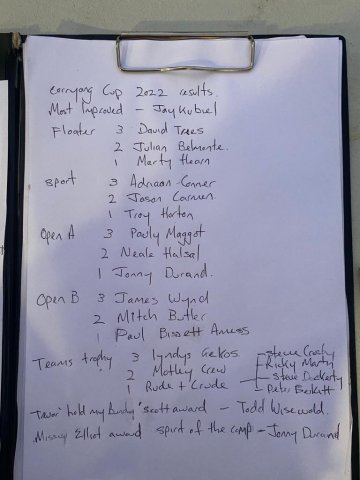 Corryong Cup 2022 results.
Most Improved - Jay Kubiel
Floater 3 David Trees
2 Julian Belmonte.
1 Marty Hearn
Sport 3 Adriaan Conner
2 Jason Carmen.
1 Troy Horton
Open A 3 Pauly Maggot
2 Neale Halsal
1 Jonny Durand.
Open B 3 James Wynd
2 Mitch Butler
1 Paul Bissett Amess
Teams trophy 3 Lyndys Gekos
2 Motley Crew
1 Rude + Crude
Steve Crosby
Ricky Martin
Steve Dockerty
Peter Beckitt
'hold my Bundy' Scott award - Todd Wisewold.
Missy Elliot award spirit of the comp - Jonny Durand